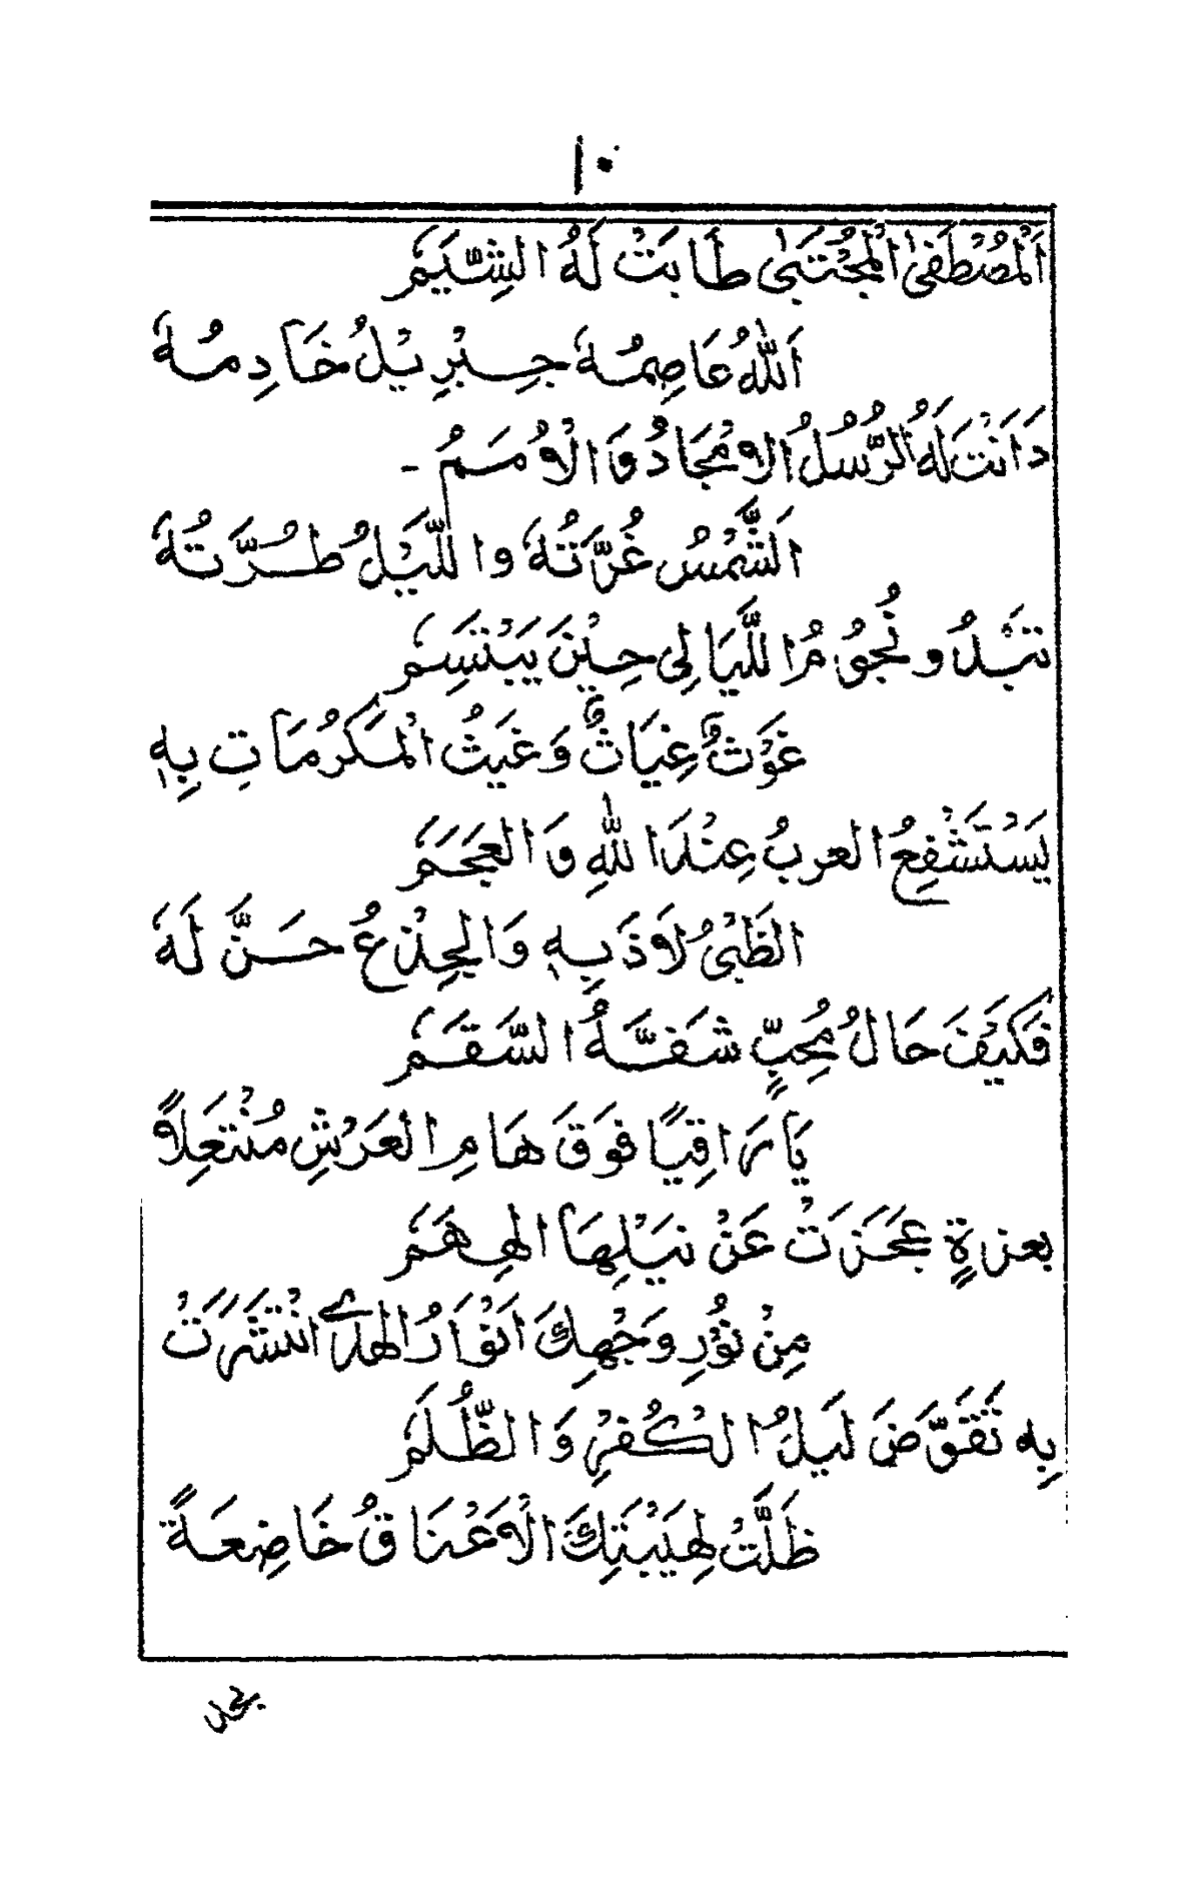 ١٠
اَلْمُصْطَفىٰ الْمُجْتَبىٰ طَابَتْ لَهُ الشِّيَمُ
اَللّٰهُ عَاصِمُهُ جِبْرِيْلُ خَادِمُهُ
دَانَتْ لَهُ الرُّسُلُ الْاَمْجَادُ وَالْاُمَمُ -
اَلشَّمْسُ غُرَّتُهُ وَاللَّيْلُ طُرَّتُهُ
تَبْدُو نُجُوْمُ اللَّيَالِي حِيْنَ يَبْتَسِمُ
غَوْثٌ غِيَاثٌ وَغَيْثُ الْمَكْرُمَاتِ بِهٖ
يَسْتَشْفِعُ العربُ عِنْدَاللّٰهِ وَالعَجَمُ
الظَّبْيُ لَاذَ بِهٖ وَالْجِذْعُ حَنَّ لَهُ
فَكَيْفَ حَالُ مُحِبٍّ شَفَّهُ السَّقَمُ
يَا رَاقِيًا فَوْقَ هَامِ الْعَرْشِ مُنْتَعِلًا
بعزةٍ عَجَزَتْ عَنْ نَيْلِهَا الْهِمَمُ
مِنْ نُوْرِ وَجْهِكَ اَنْوَارُ الْهُدىٰ انْتَشَرَتْ
بِهِ تَقَوَّضَ لَيْلُ الْكُفْرِ وَالظُّلَمُ
ظَلَّتْ لِهَيْبَتِكَ الْاَعْنَاقُ خَاضِعَةً